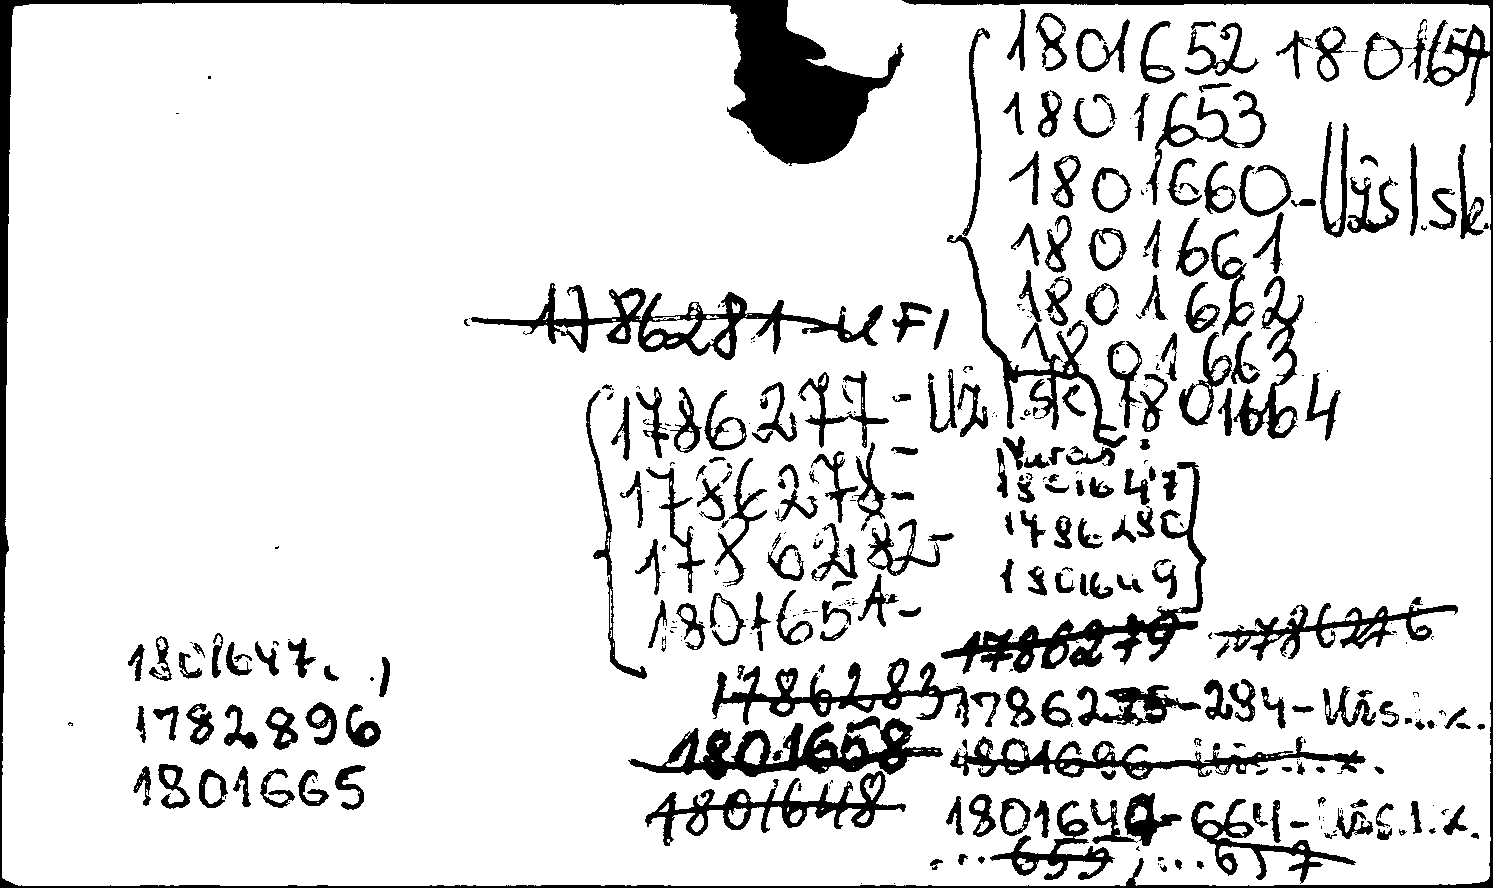 1801652 1801651
1801653
1801660 - Užs l.sk
1801661
1801662
1801663
1801664
1786281 - UFI
1786277 - Už l.sk
1786278 -
1786282 -
1801651 -
Yuras:
1801647
1786280
1801649
1786279 1786276
1786283
1786275-284 - Užs.l.x.
1801658
1801696 Užs.l.x.
1801648
1801649-664 - Užs.l.x.
...655, ...657
1801647. ,
1782896
1801665